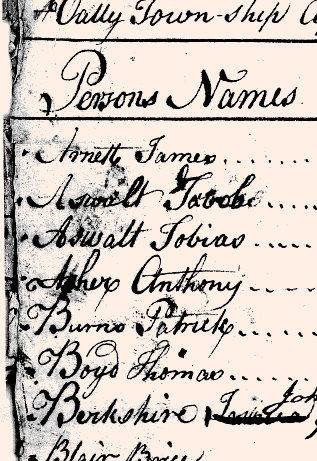 Township
Persons Names
Arnett James
Aswalt Jacob
Aswalt Tobias
Asher Anthony
Burns Patrick
Boyd Thomas
Berkshire Joh
Blair Brice